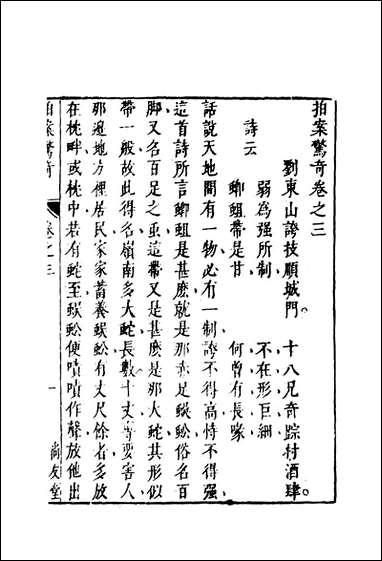 拍案驚奇卷之三
劉東山誇技順城門　十八兄奇踪村酒肆
詩云
弱為強所制　不在形巨細
蝍蛆帶是甘　何曾有長喙
話說天地間有一物必有一制誇不得高恃不得強
這首詩所言蝍蛆是甚麼就是那赤足蜈蚣俗名百
脚又名百足之虫這帶又是甚麼是那大蛇其形似
帶一般故此得名嶺南多大蛇長數十丈專要害人
那邊地方裡居民家家畜養蜈蚣有丈尺餘者多放
在枕畔或枕中若有蛇至蜈蚣便嘖嘖作聲放他出
拍案驚奇
卷之三
一
尚友堂